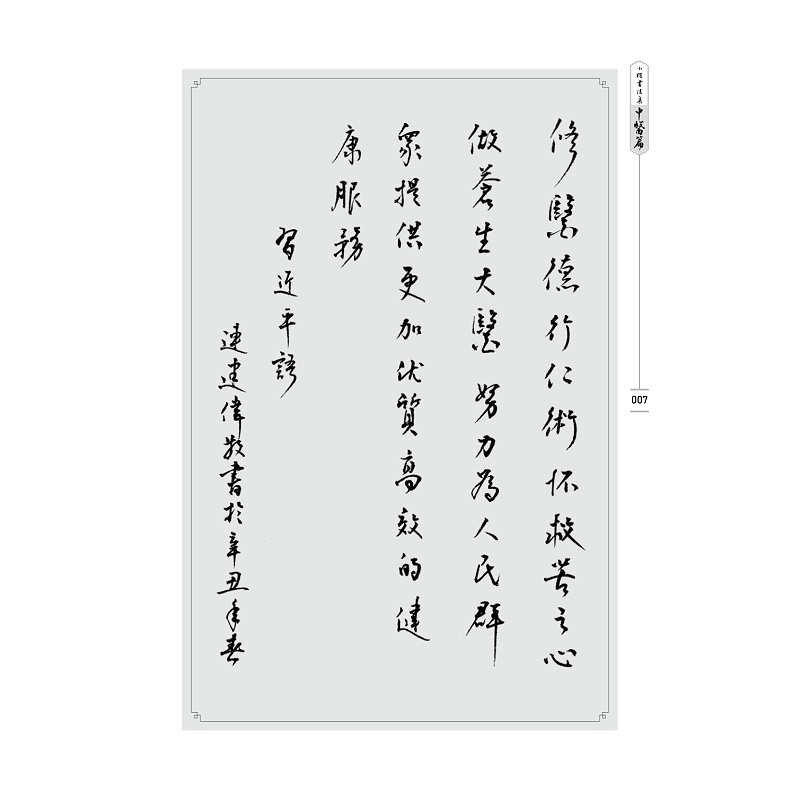 修醫德行仁術怀救苦之心
做蒼生大醫 努力為人民群
眾提供更加优質高效的健
康服務
習近平語
連建偉敬書於辛丑年春
小楷書法集 中醫篇
007